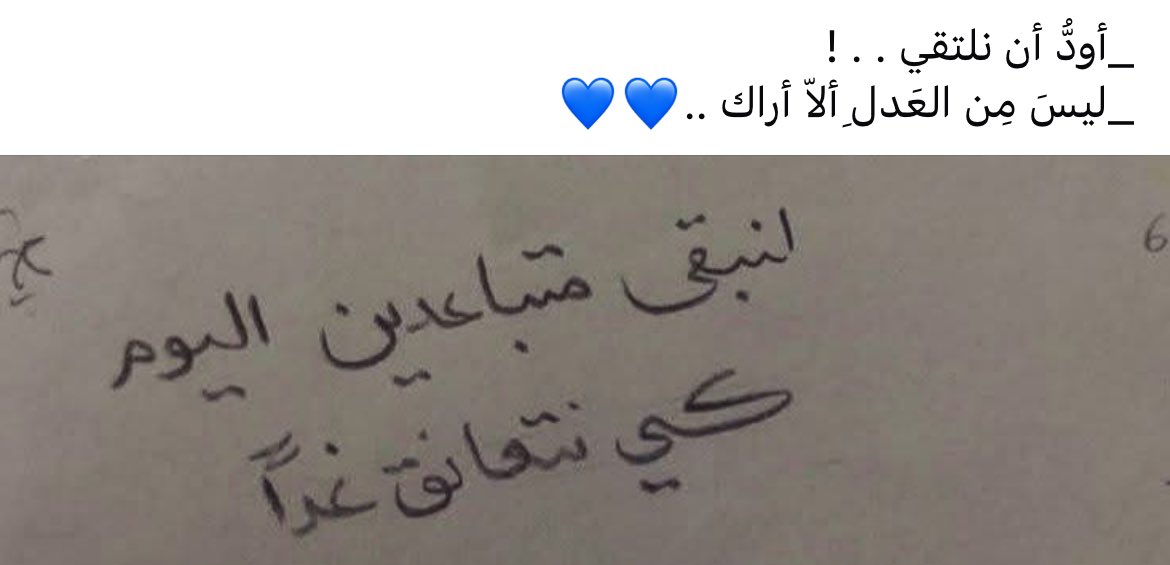 _أودُّ أن نلتقي . . !
_ليسَ مِن العَدلِ ألاّ أراك ..💙💙
لنبقى متباعدين اليوم
كي نتعانق غداً
6